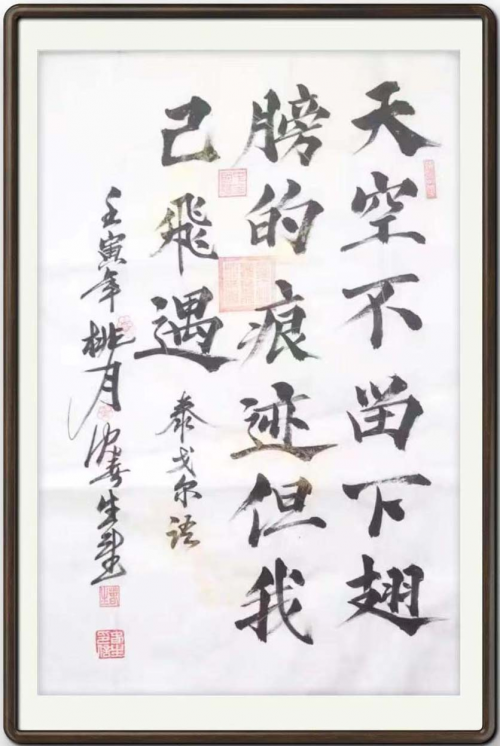 天空不留下翅
膀的痕迹但我
己飛遇
泰戈尔语
壬寅年桃月沈喜生